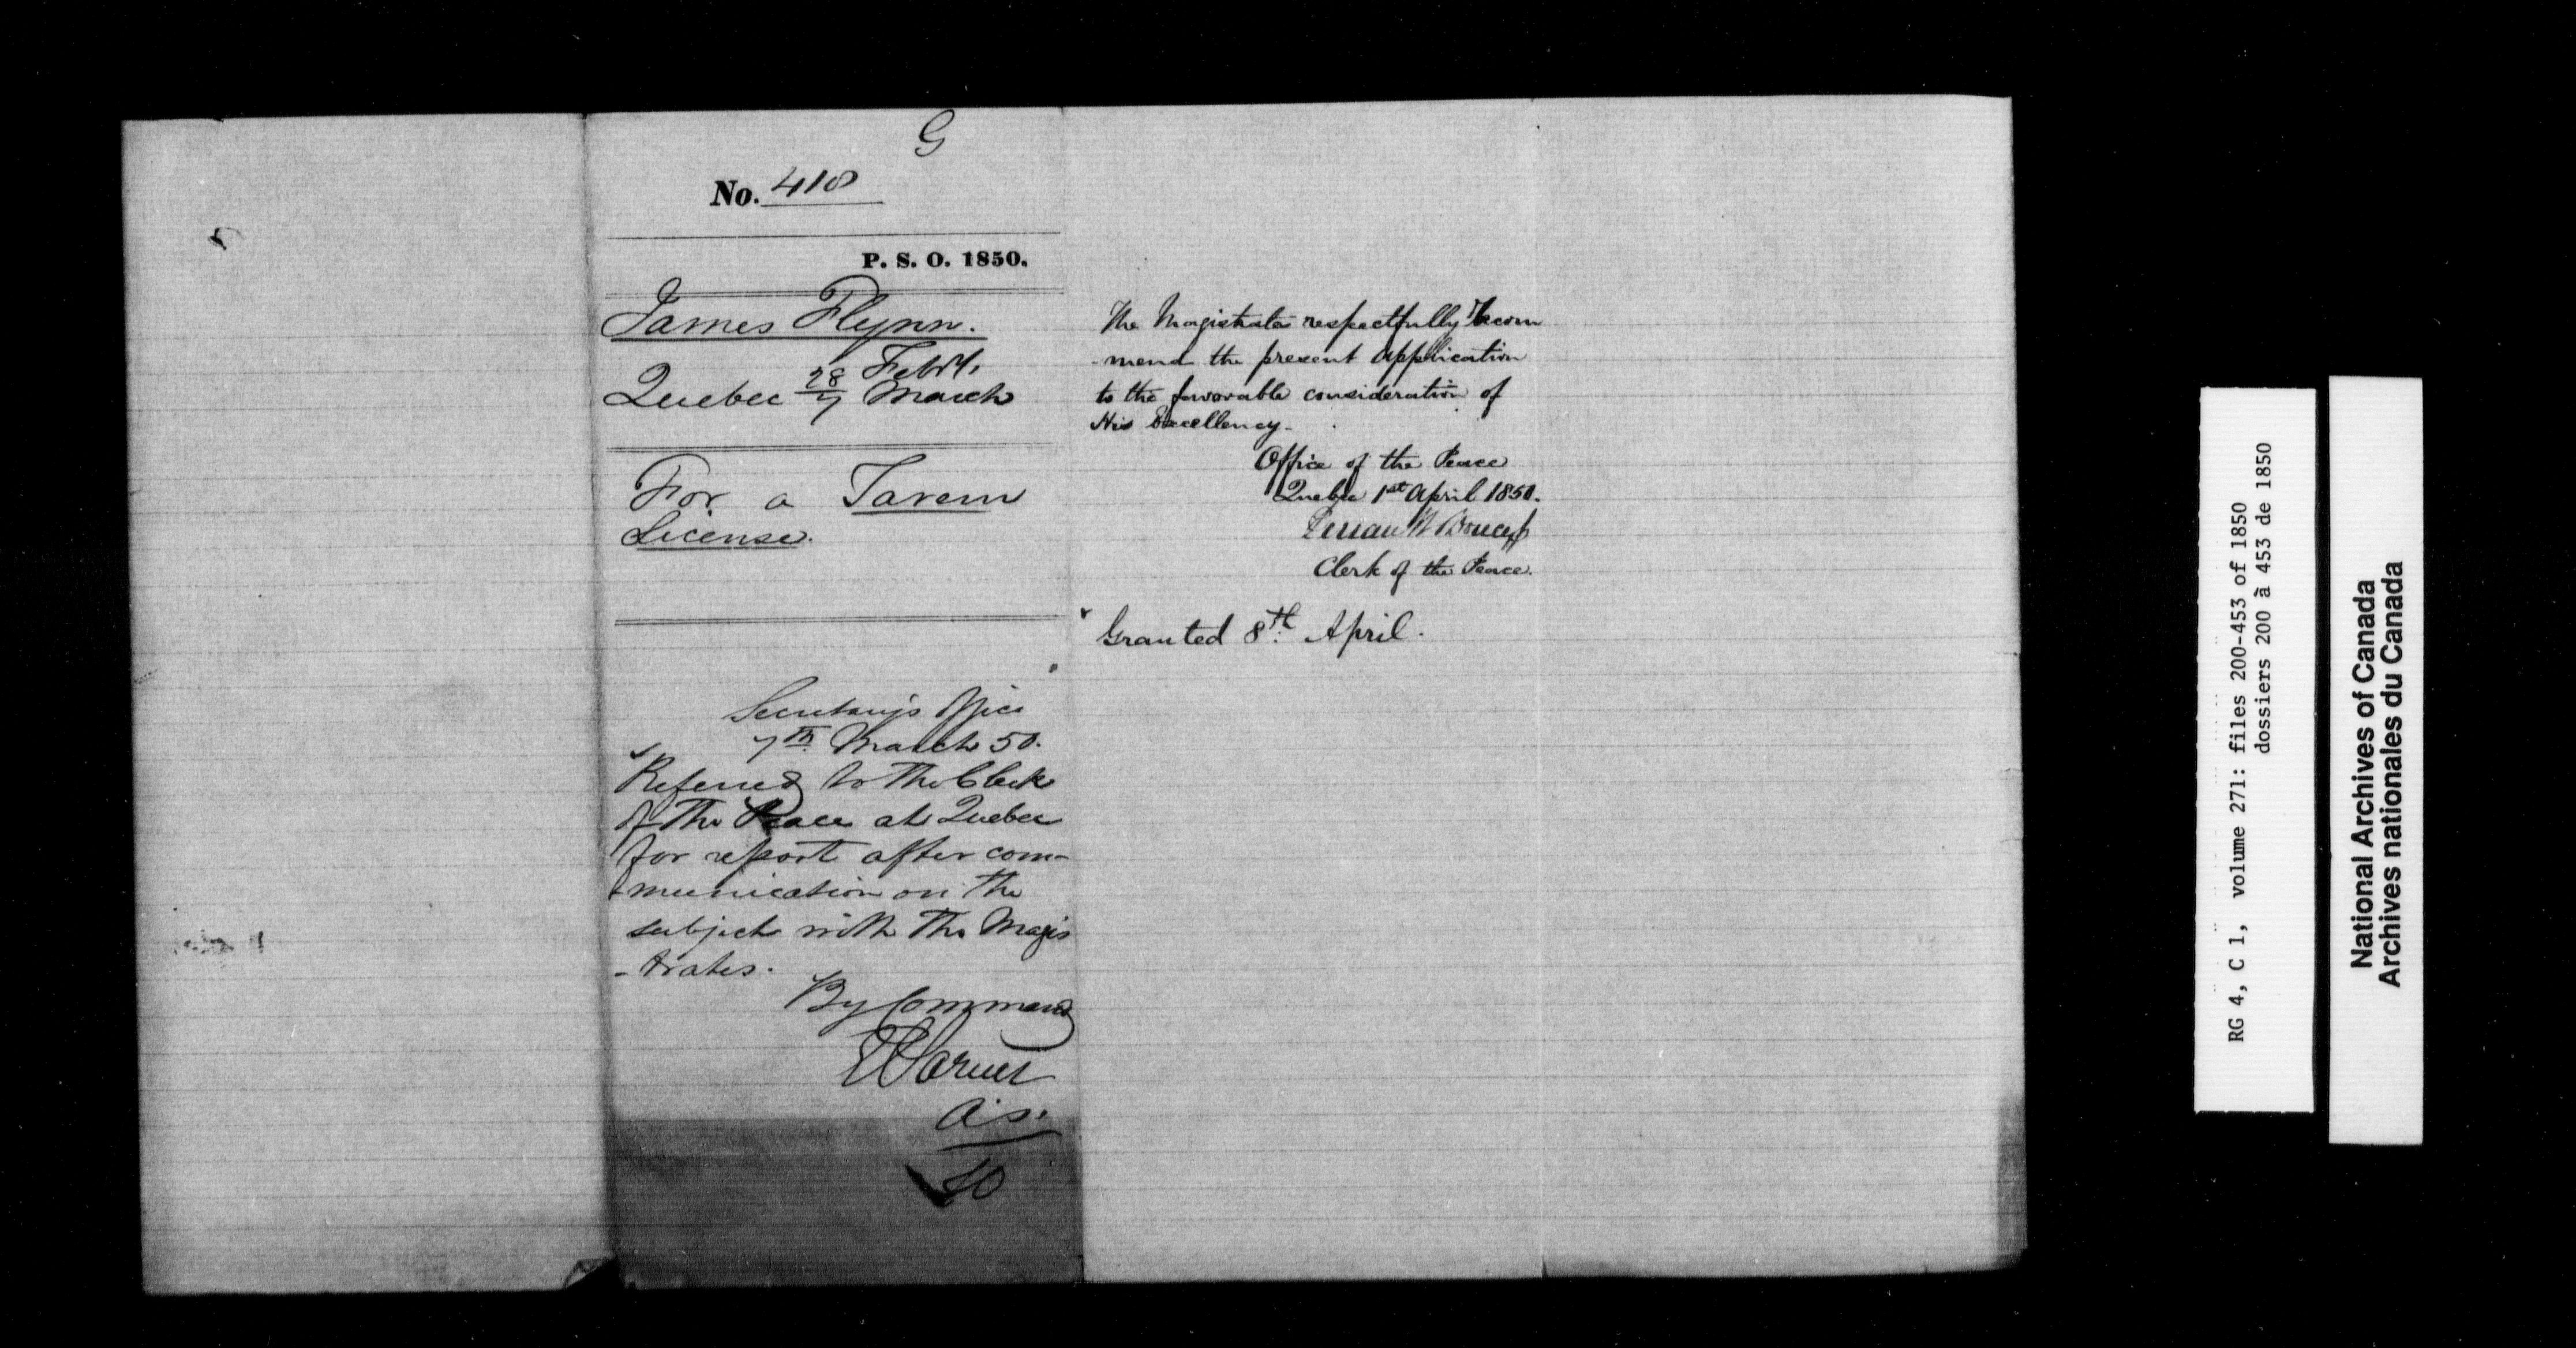 G
No. 418
P. S. O. 1850.
James Flynn.
Quebec 28/7 Febry. March
For a Tavern
License.
Secretary's Office
7th March 50.
Referred to the Clerk
of the Peace at Quebec
for report after com-
munication on the
subject with the Magis
-trates.
By Command
A.S.
The Magistrates respectfully Recom
-mend the present application
to the favorable consideration of
His Excellency-
Office of the Peace
Quebec 1st April 1850.
Clerk of the Peace.
Granted 8th April.
RG 4, C 1, volume 271: files 200-453 of 1850
dossiers 200 à 453 de 1850
National Archives of Canada
Archives nationales du Canada